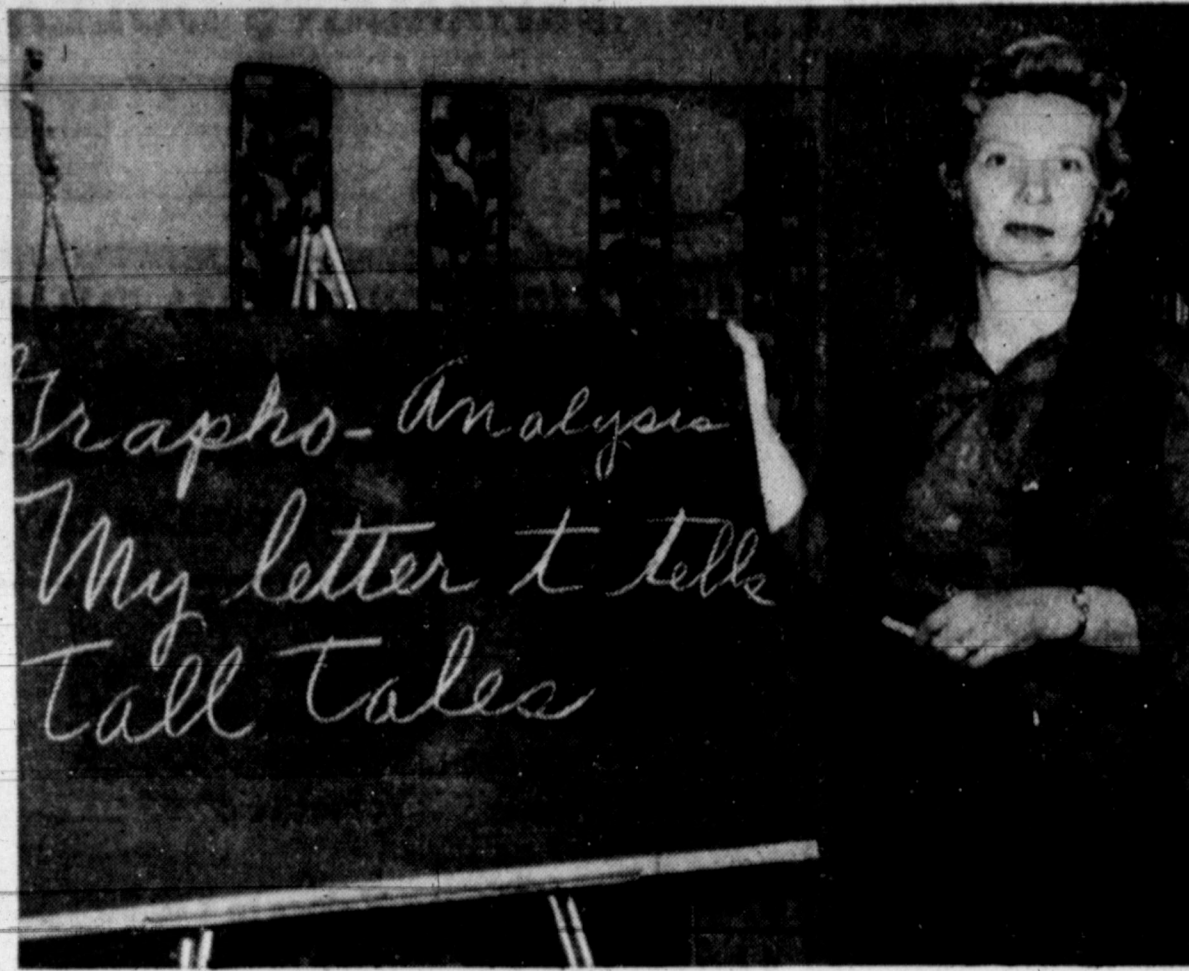 Grapho-Analysis
My letter t tells
Tall Tales